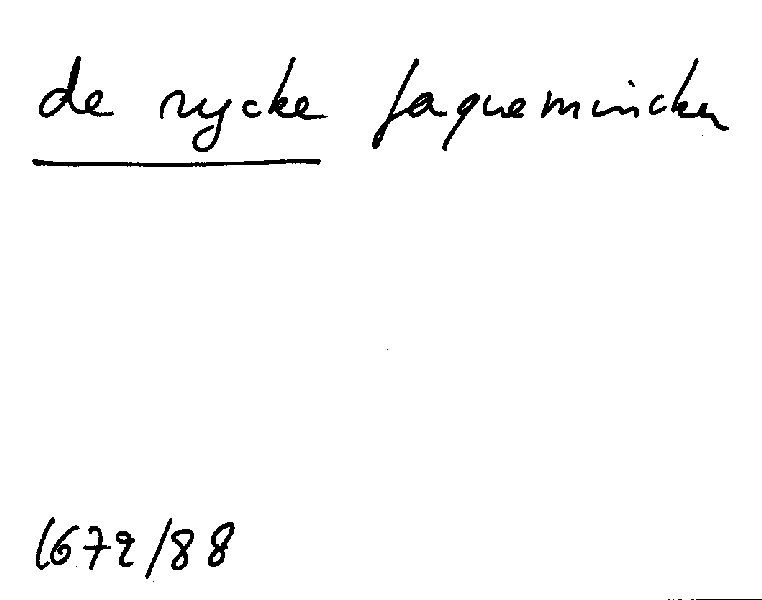 de rycke Jaquemincken
1672/88